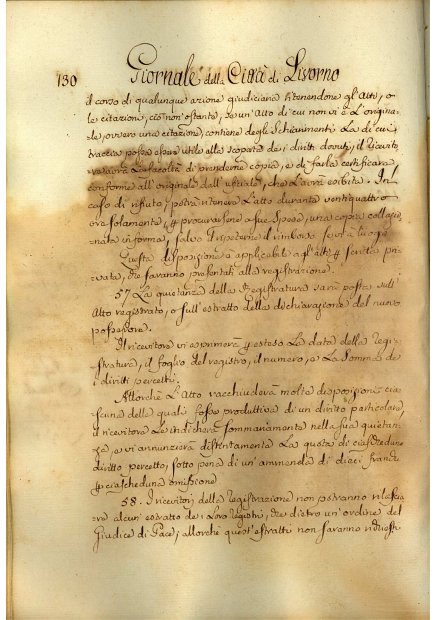 130 Giornale della Città di Livorno
il corso di qualunque azione giudiciaria ritenendone gl'Atti, o
le citazioni, ciò non ostante, se un'Atto di cui non vi è L'origina-
le, ovvero una citazione, contiene degli Schiarimenti La di cui
traccia possa essere utile alla scoperta dei diritti dovuti, il Ricevito
re avrà La facoltà di prenderne copia, e di farla certificare
conforme all'originale dall'ufiziale, che L'avrà esibita. In
caso di rifiuto potrà ritenere L'atto durante ventiquattr'o-
re solamente, per procurarsene a sue spese, una copia collazio-
nata in forma, salvo di ripeterne il rimborso se vi à luogo
Questa disposizione è applicabile agl'atti per scritta pri-
vata, che saranno presentati alla registrazione.
57. La quietanza della Registratura sarà posta sull'
Atto registrato, o sull'estratto della dichiarazione del nuovo
possessore.
Il ricevitore vi esprimerà per esteso La data della Regi-
stratura, il foglio del registro, il numero, e La Somma de
i diritti percetti.
Allorchè L'Atto racchiuderà molte disposizioni cia-
scuna delle quali fosse produttiva di un diritto particolare,
il ricevitore Le indicherà sommariamente nella sua quietan-
za, e vi annunzierà distintamente La quota di ciaschedun
diritto percetto, sotto pena di un'ammenda di dieci franchi
per ciascheduna omissione
58. I ricevitori della registrazione non potranno rilascia
re alcun estratto dei Loro registri, che dietro un'ordine del
Giudice di Pace; allorchè quest'estratti non saranno richiesti